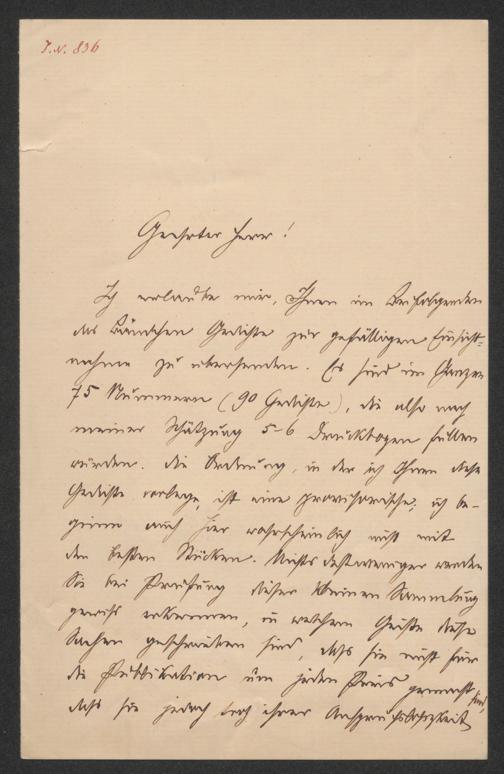 I. N. 836
Geehrter Herr!
Ich erlaube mir, Ihnen im Beifolgenden
das Bändchen Gedichte zur gefälligen Einsicht-
nahme zu übersenden. Es sind im Ganzen
75 Nummern (90 Gedichte), die also nach
meiner Schätzung 5-6 Druckbogen füllen
würden. Die Ordnung, in der ich Ihnen diese
Gedichte vorlege, ist eine provisorische; ich be-
ginne auch hier wahrscheinlich nicht mit
den besten Stücken. Nichts destoweniger werden
Sie bei Prüfung dieser kleinen Sammlung
gewiß erkennen, in welchem Geiste diese
Sachen geschrieben sind, daß sie nicht für
die Publikation um jeden Preis gemacht sind,
daß sie jedoch trotz ihrer Anspruchslosigkeit